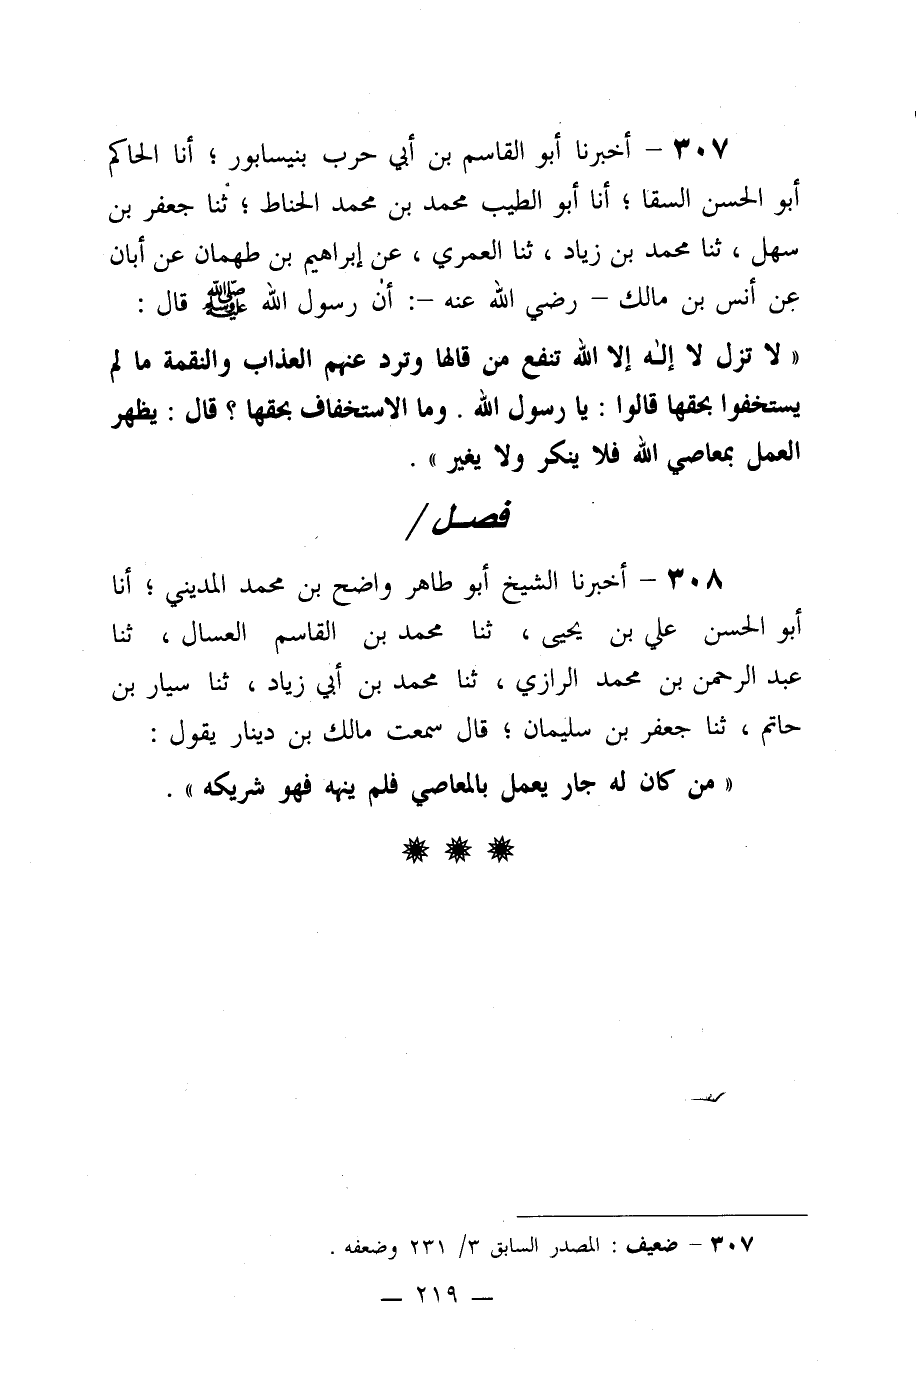 ٣٠٧ – أخبرنا أبو القاسم بن أبي حرب بنيسابور ؛ أنا الحاكم
أبو الحسن السقا ؛ أنا أبو الطيب محمد بن محمد الحناط ؛ ثنا جعفر بن
سهل ، ثنا محمد بن زياد ، ثنا العمري ، عن إبراهيم بن طهمان عن أبان
عن أنس بن مالك – رضي الله عنه –: أن رسول الله ﷺ قال :
« لا تزل لا إله إلا الله تنفع من قالها وترد عنهم العذاب والنقمة ما لم
يستخفوا بحقها قالوا : يا رسول الله . وما الاستخفاف بحقها ؟ قال : يظهر
العمل بمعاصي الله فلا ينكر ولا يغير » .
فصـل /
٣٠٨ – أخبرنا الشيخ أبو طاهر واضح بن محمد المديني ؛ أنا
أبو الحسن علي بن يحيى ، ثنا محمد بن القاسم العسال ، ثنا
عبد الرحمن بن محمد الرازي ، ثنا محمد بن أبي زياد ، ثنا سيار بن
حاتم ، ثنا جعفر بن سليمان ؛ قال سمعت مالك بن دينار يقول :
« من كان له جار يعمل بالمعاصي فلم ينهه فهو شريكه » .
٣٠٧ – ضعيف : المصدر السابق ٣/ ٢٣١ وضعفه .
— ٢١٩ —